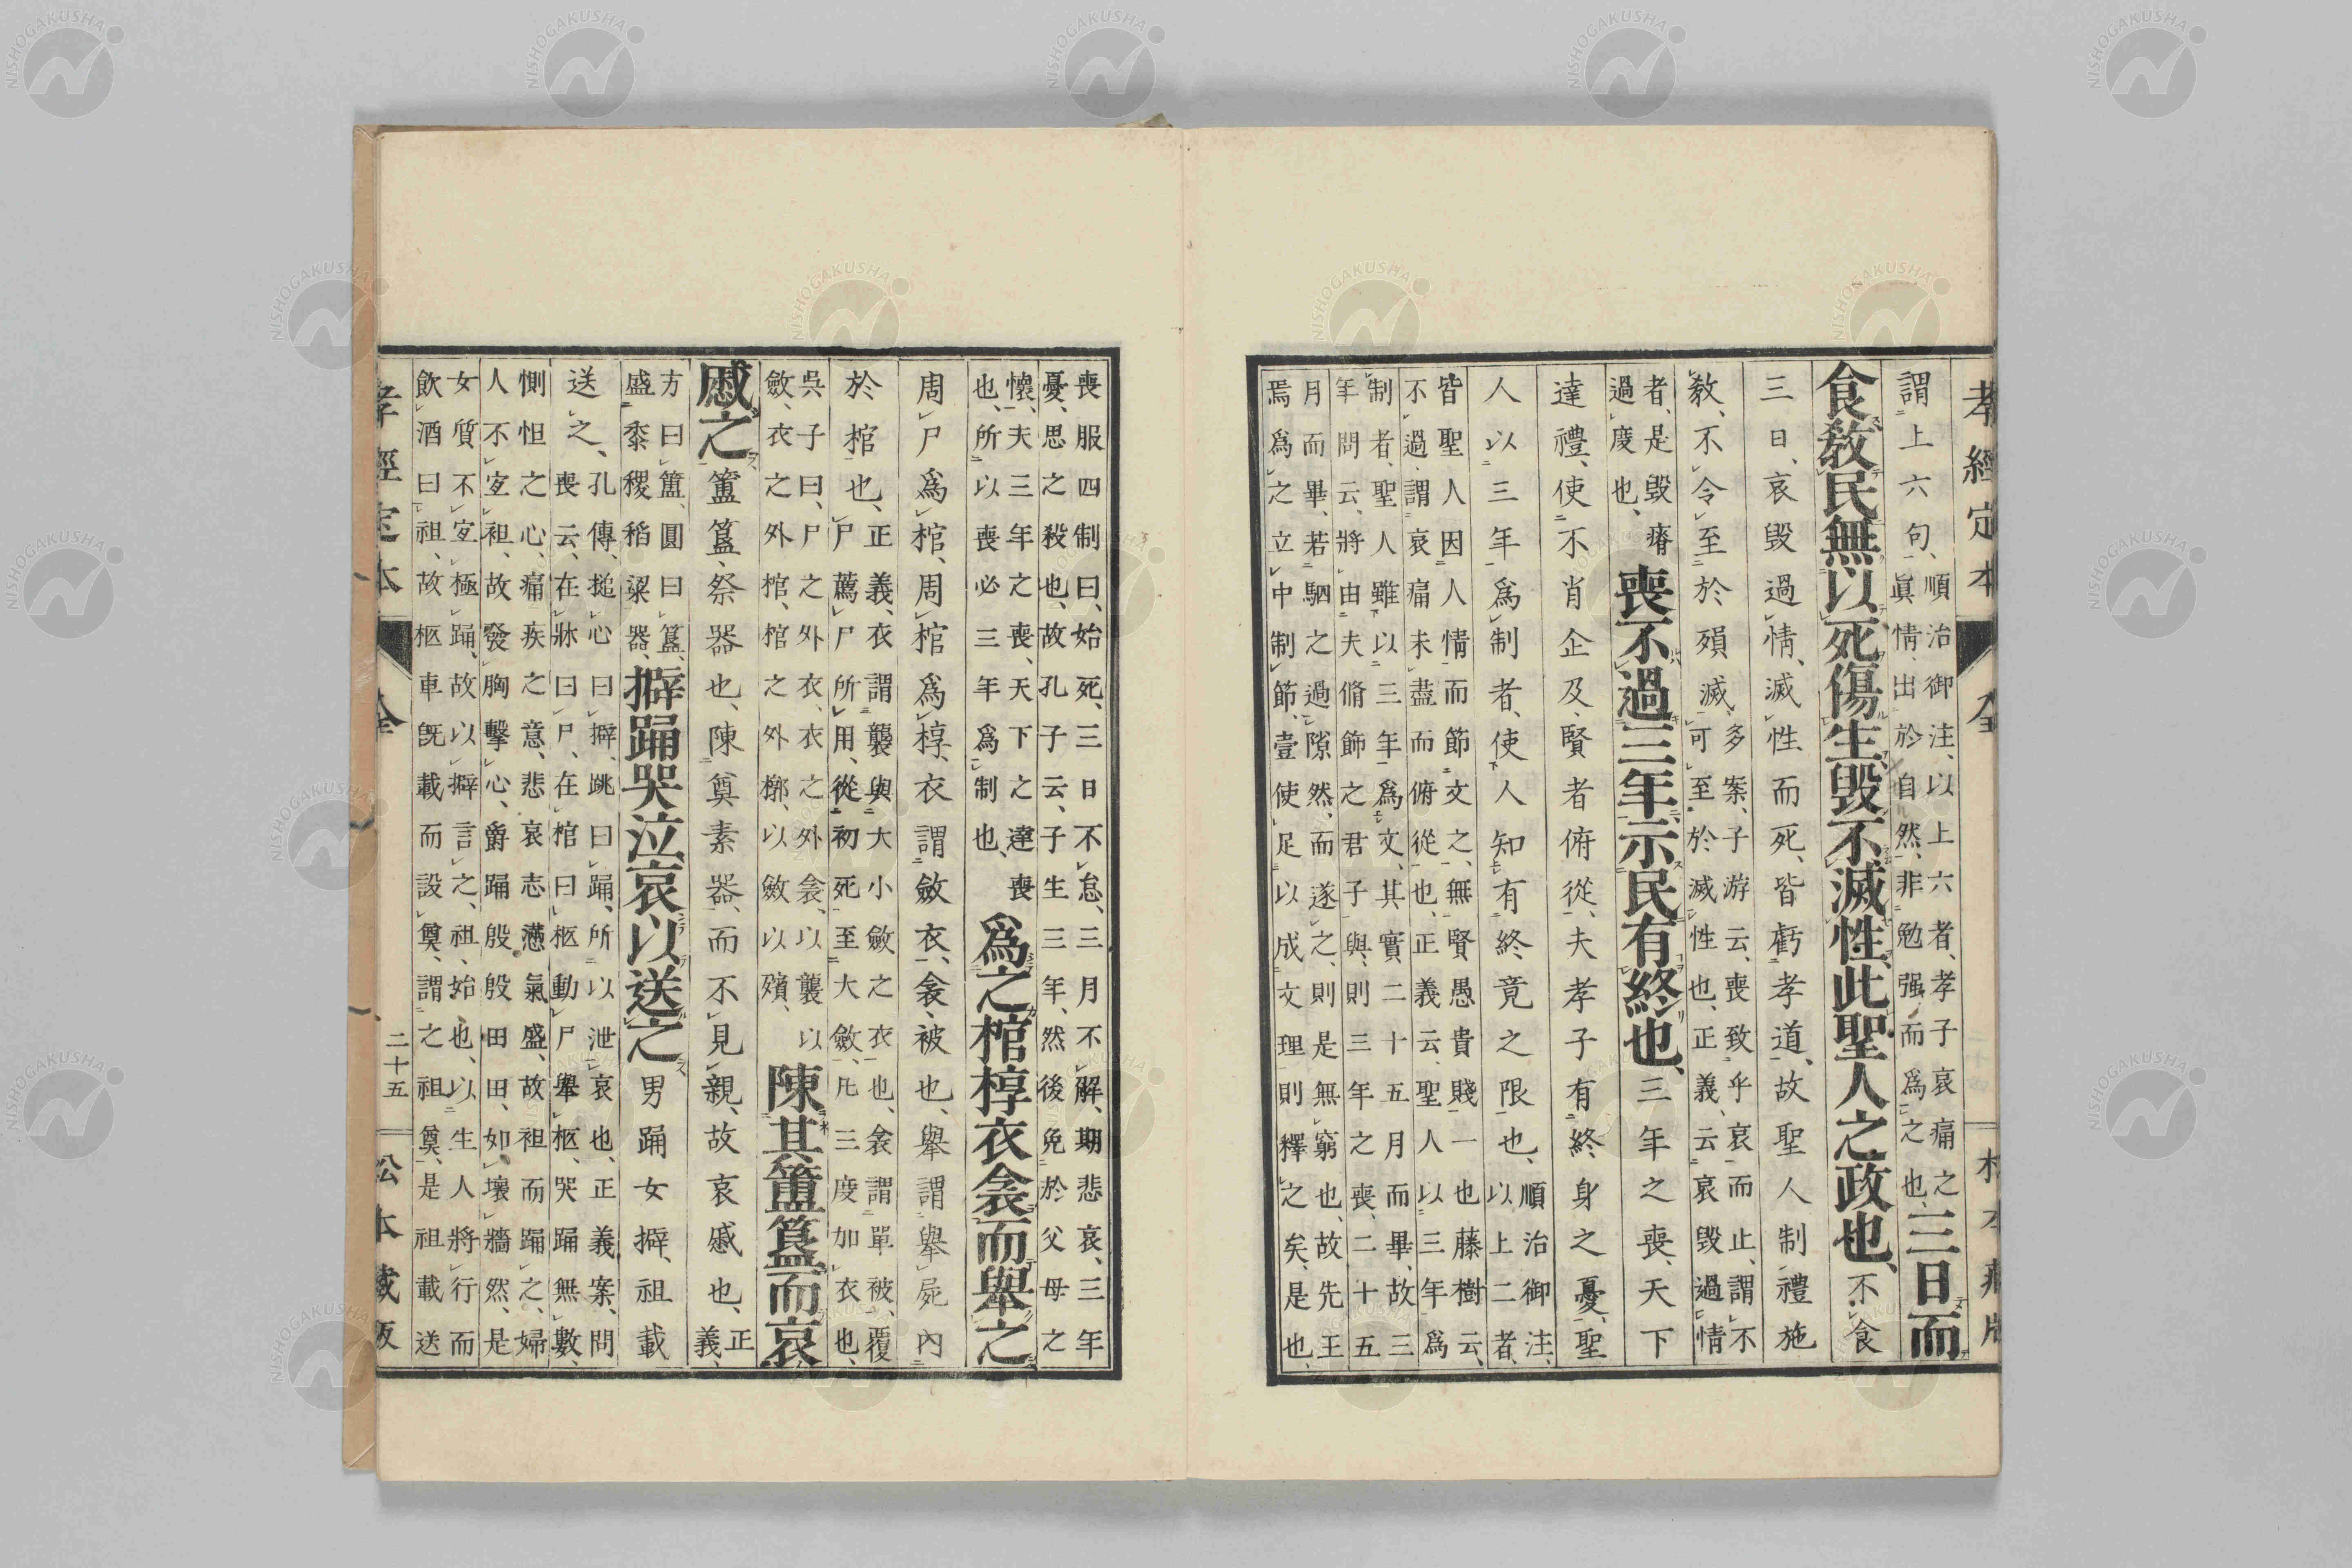 孝經定本 全 松本藏版
謂上六句、順治御注、以上六者、孝子哀痛之
眞情、出於自然、非勉强、而爲之也、三日而
食教民無以死傷生毀不滅性此聖人之政也、不食
三日、哀毀過情、滅性而死、皆虧孝道、故聖人制禮施
教、不令至於殞滅、多案、子游云、喪致乎哀而止、謂不
可至於滅性也、正義、云哀毀過情
者、是毀瘠
過度也、喪不過三年示民有終也、三年之喪、天下
達禮、使不肖企及、賢者俯從、夫孝子有終身之憂、聖
人以三年爲制者、使人知有終竟之限也、順治御注、
以上二者、
皆聖人因人情而節文之、無賢愚貴賤一也藤樹云、
不過、謂哀痛未盡而俯從也、正義云、聖人以三年爲
制者、聖人雖以三年爲文、其實二十五月而畢、故三
年問云、將由夫脩飾之君子與、則三年之喪、二十五
月而畢、若駟之過隙然、而遂之、則是無窮也、故先王
焉爲之立中制節、壹使足以成文理則釋之矣、是也、
喪服四制曰、始死、三日不怠、三月不解、期悲哀、三年
憂、思之殺也、故孔子云、子生三年、然後免於父母之
懷、夫三年之喪、天下之達喪
也、所以喪必三年爲制也、爲之棺椁衣衾而舉之
周尸爲棺、周棺爲椁、衣謂斂衣、衾、被也、舉謂舉屍內
於棺也、正義、衣謂襲與大小斂之衣也、衾謂單被、覆
尸薦尸所用、從初死至大斂、凡三度加衣也、
吳子曰、尸之外衣、衣之外衾、以襲以
斂、衣之外棺、棺之外槨、以斂以殯、陳其簠簋而哀
慼之簠簋、祭器也、陳奠素器、而不見親、故哀慼也、正
義、
方曰簠、圓曰簋、
盛黍稷稻粱器、擗踊哭泣哀以送之男踊女擗、祖載
送之、孔傳、搥心曰擗、跳曰踊、所以泄哀也、正義案、問
喪云、在牀曰尸、在棺曰柩、動尸舉柩、哭踊無數、
惻怛之心、痛疾之意、悲哀志懣氣盛、故袒而踊之、婦
人不宜袒、故發胸擊心、爵踊殷殷田田、如壞牆然、是
女質不宜極踊、故以擗言之、祖、始也、以生人將行而
飲酒曰祖、故柩車既載而設奠、謂之祖奠、是祖載送
孝經定本 全 二十五 松本藏版